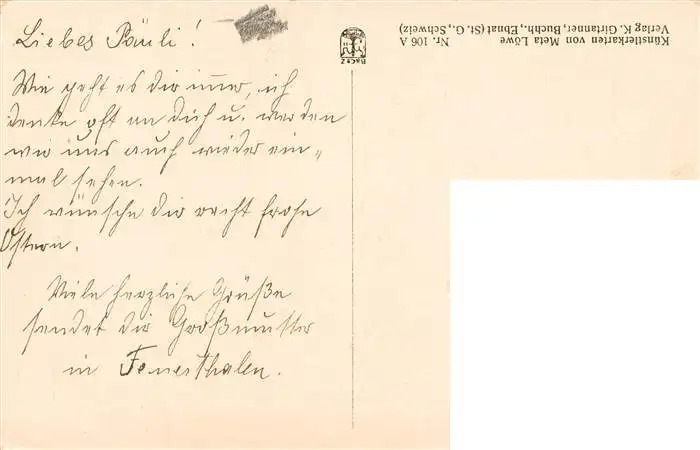 Liebes Päuli!
Wie geht es dir immer, ich
denke oft an dich u. werden
wir uns auch wieder ein-
mal sehen.
Ich wünsche dir recht frohe
Ostern.
Viele herzliche Grüße
sendet dir Großmutter
in Feuerthalen.
Künstlerkarten von Meta Löwe Nr. 106 A
Verlag K. Girtanner, Buchh., Ebnat (St. G., Schweiz)